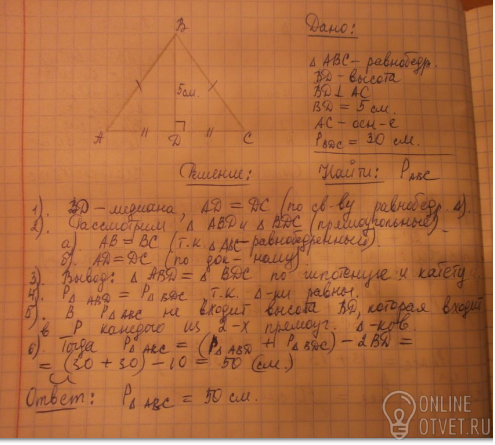 B
5см.
A
D
C
Дано:
△ ABC - равнобедр.
BD - высота
BD ⊥ AC
BD = 5 см.
AC - осн-е
P△BDC = 30 см.
Решение:
Найти: P△ABC
1). BD - медиана, AD = DC (по св-ву равнобедр. △).
2). Рассмотрим △ ABD и △ BDC (прямоугольные)
а). AB = BC (т.к. △ABC - равнобедренный).
б). AD = DC (по док-ному)
3). Вывод: △ ABD = △ BDC по гипотенузе и катету
4). P△ABD = P△BDC т.к. △-ки равны.
5). В P△ABC не входит высота BD, которая входит
в P каждого из 2-х прямоуг. △-ков
6). Тогда P△ABC = (P△ABD + P△BDC) - 2BD =
= (30 + 30) - 10 = 50 (см.)
Ответ: P△ABC = 50 см.
ONLINE
OTVET.RU